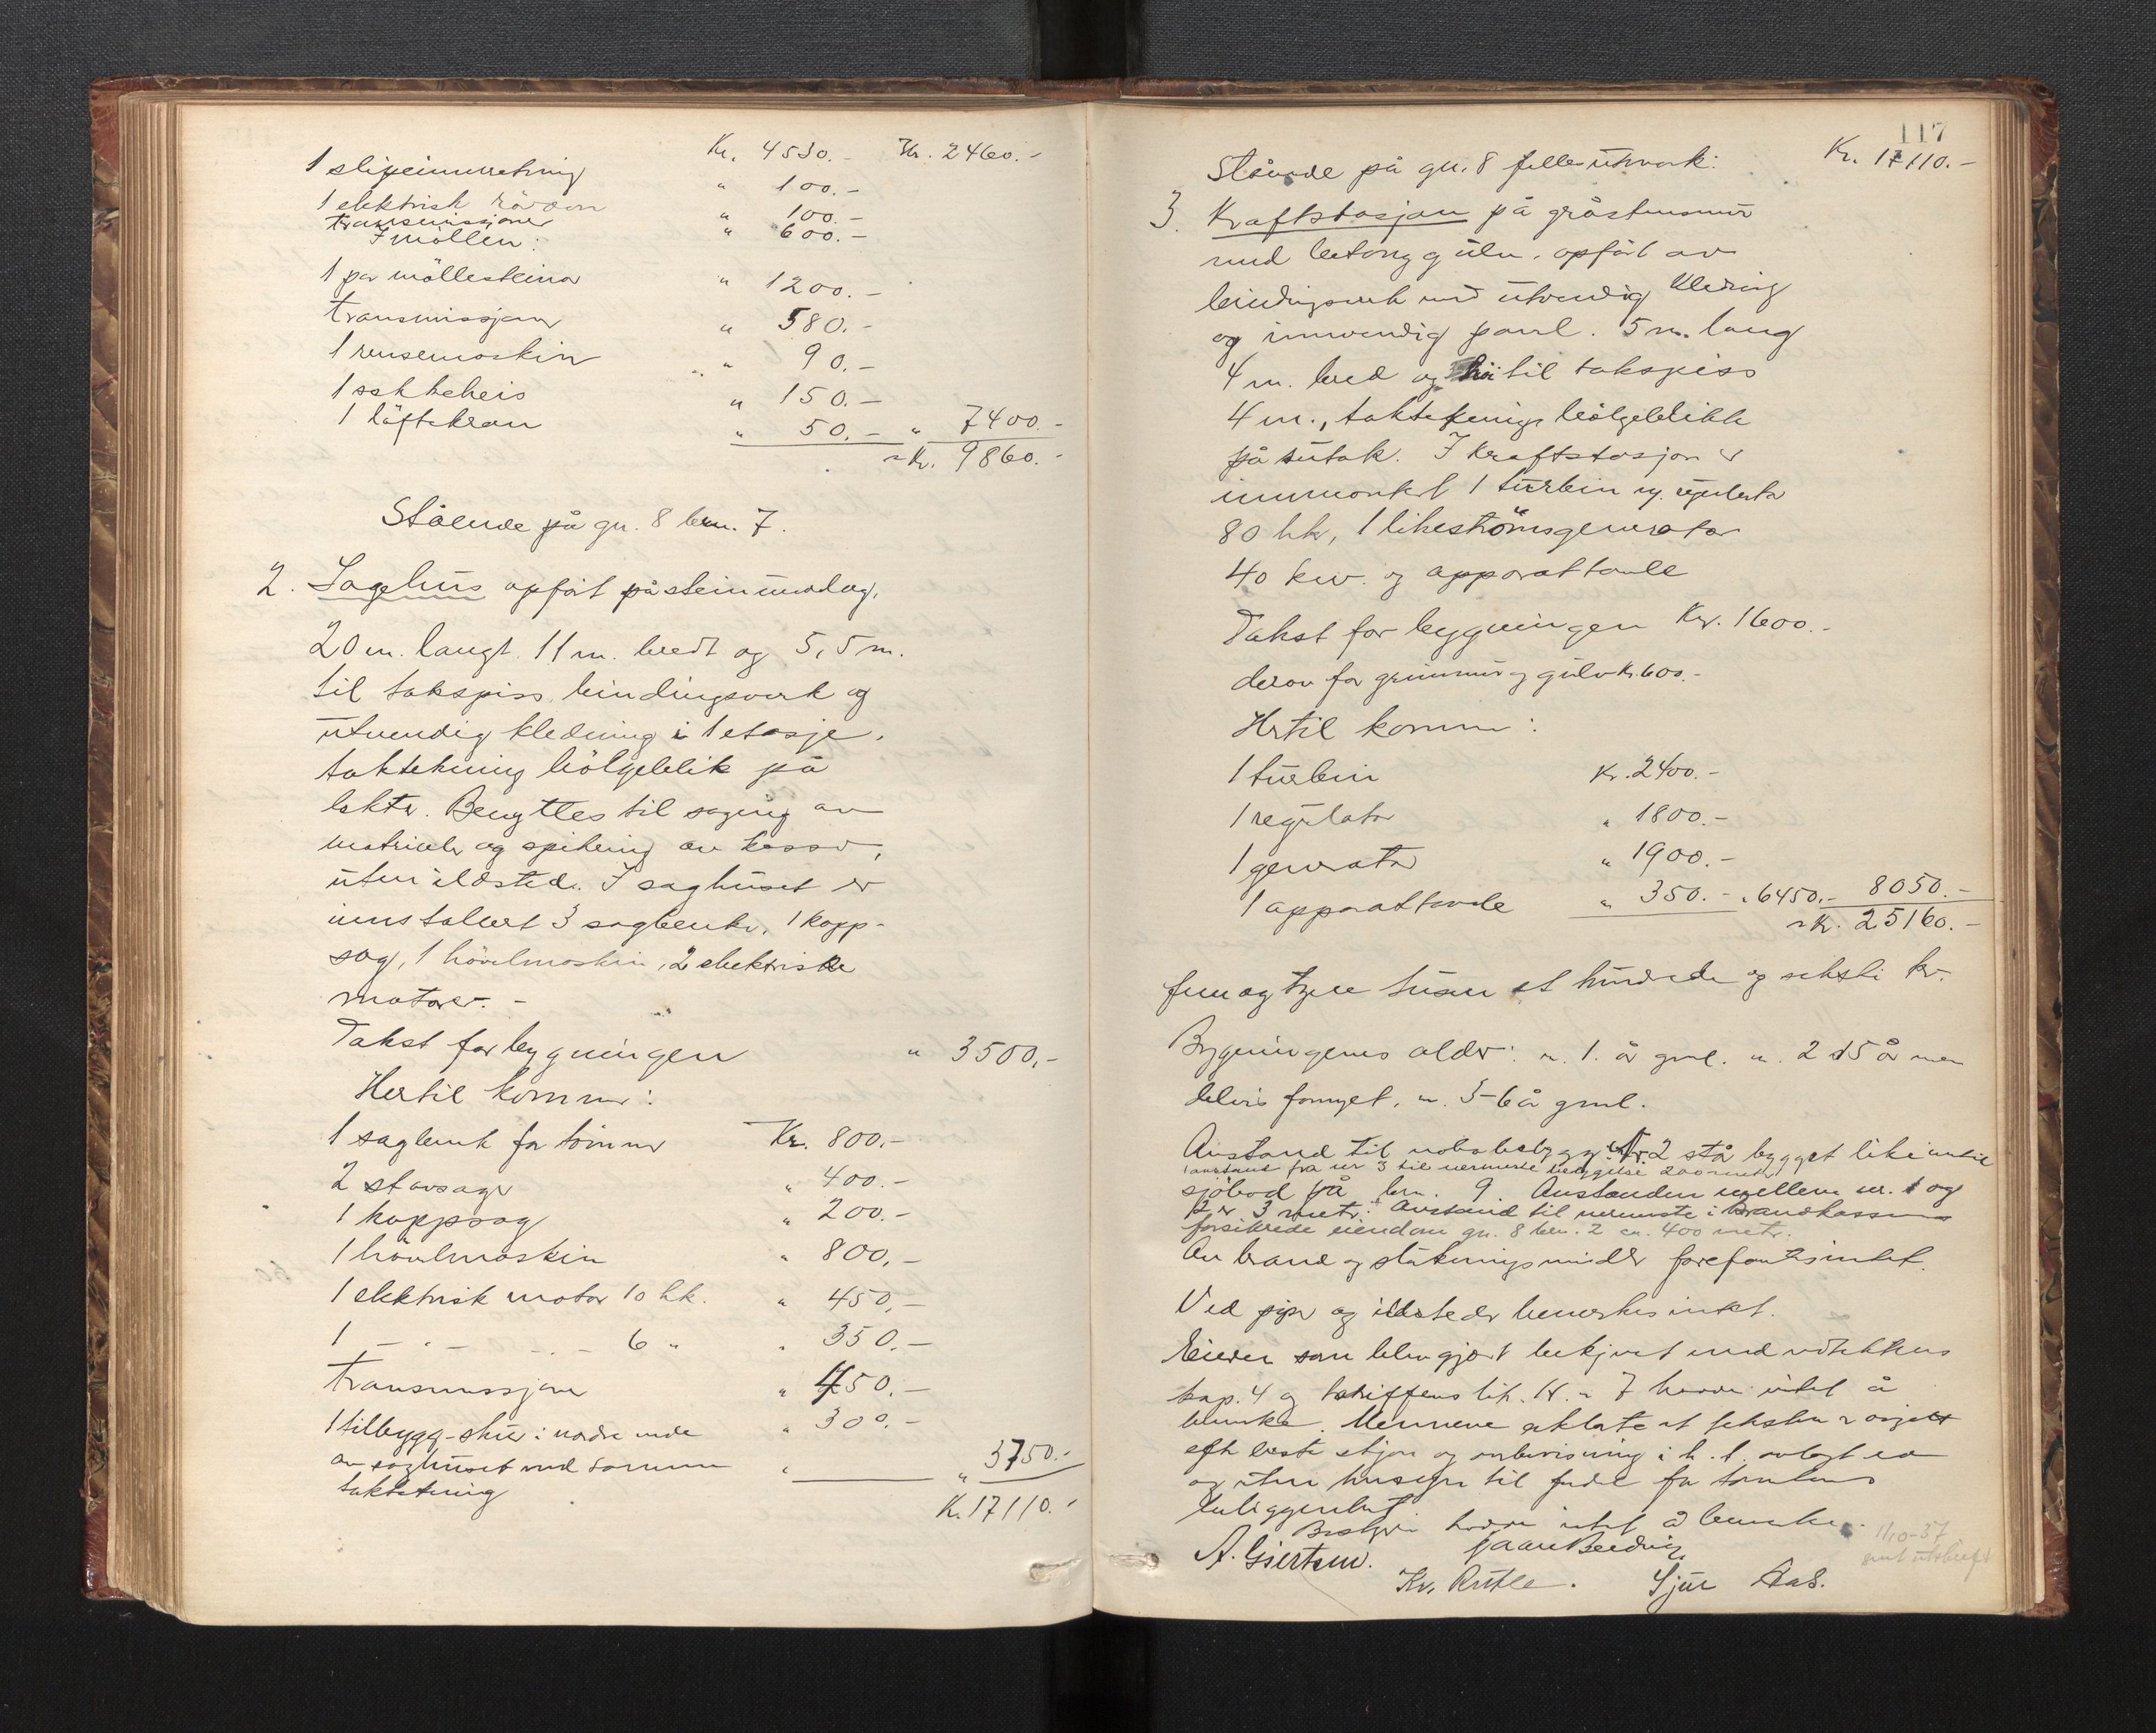 Kr. 4530.- Kr. 2460.-
1 slipeinnretning " 100.-
1 elektrisk " 100.-
transmissjoner " 600.-
I möllen:
1 par möllesteiner " 1200.-
transmissjoner " 580.-
1 rensemaskin " 90.-
1 sekkeheis " 150.-
1 löftekran " 50.- " 7400.-
Kr. 9860.-
Stående på gn. 8 brn. 7.
2. Sagehus opfört på steinunderlag,
20 m. langt 11 m. bredt og 5,5 m.
til takspiss, bindingsverk og
utvendig kledning i 1 etasje,
taktekning bölgeblik på
lekter. Benyttes til saging av
materialer og spikring av kasser,
uten ildsted. I saghuset er
innstallert 3 sagbenker, 1 kapp-
sag, 1 hövelmaskin, 2 elektriske
motorer. -
Takst for bygningen " 3500,-
Hertil kommer:
1 sagbenk for tömmer Kr. 800.-
2 stavsager " 400.-
1 kappsag " 200.-
1 hövelmaskin " 800,-
1 elektrisk motor 10 hk. " 450,-
1 - " - - " - 6 " " 350.-
transmissjoner " 450.-
1 tilbygg-skur i nordre ende " 300.-
av saghuset med samme " " 3750.-
taktekning Kr. 17110.-
117
Stående på gn. 8 felles utmark: Kr. 17110.-
3. Kraftstasjon på gråstensmur
med betonggulv, opfört av
bindingsverk med utvendig kledning
og innvendig panel. 5 m. lang
4 m. bred og höi til takspiss
4 m., taktekning bölgeblikk
på sutak. I kraftstasjon er
innmontert 1 turbin og regulator
80 hk, 1 likeströmsgenerator
40 kw. og apparattavle
Takst for bygningen Kr. 1600.-
derav for grunnmur og gulv Kr. 600.-
Hertil kommer:
1 turbin Kr. 2400.-
1 regulator " 1800.-
1 generator " 1900.-
1 apparattavle " 350.- " 6450.- 8050.-
Kr. 25160.-
fem og tyve tusen et hundrede og seksti kr.
Bygningenes alder: nr. 1. år gml. nr. 2 15 år men
delvis fornyet, nr. 3 - 6 år gml.
Avstand til nabobebygg: Nr 2 står bygget like inntil
(avstand fra nr 3 til nermeste bebyggelse 200 meter)
sjöbod på brn. 9. Avstanden mellem nr. 1 og
2 er 3 meter. Avstand til nermeste i Brandkassen
forsikrede eiendom gn. 8 brn. 2 ca. 400 meter.
Av brand og slukningsmidler forefantes intet.
Ved piper og ildsteder bemerkes intet.
Eieren som blev gjort bekjent med
kap. 4 og tariffens lit. 7 havde intet å
bemerke. Mennene erklærte at taksten er avgitt
efter beste skjön og overbevisning i h. t. avlagt ed
og uten hensyn til fordel for tomtens
beliggenhet
Bestyrer havde intet å bemerke.
A. Gjertsen.
Kr. Rutle. Sjur Aas.
1/10-37